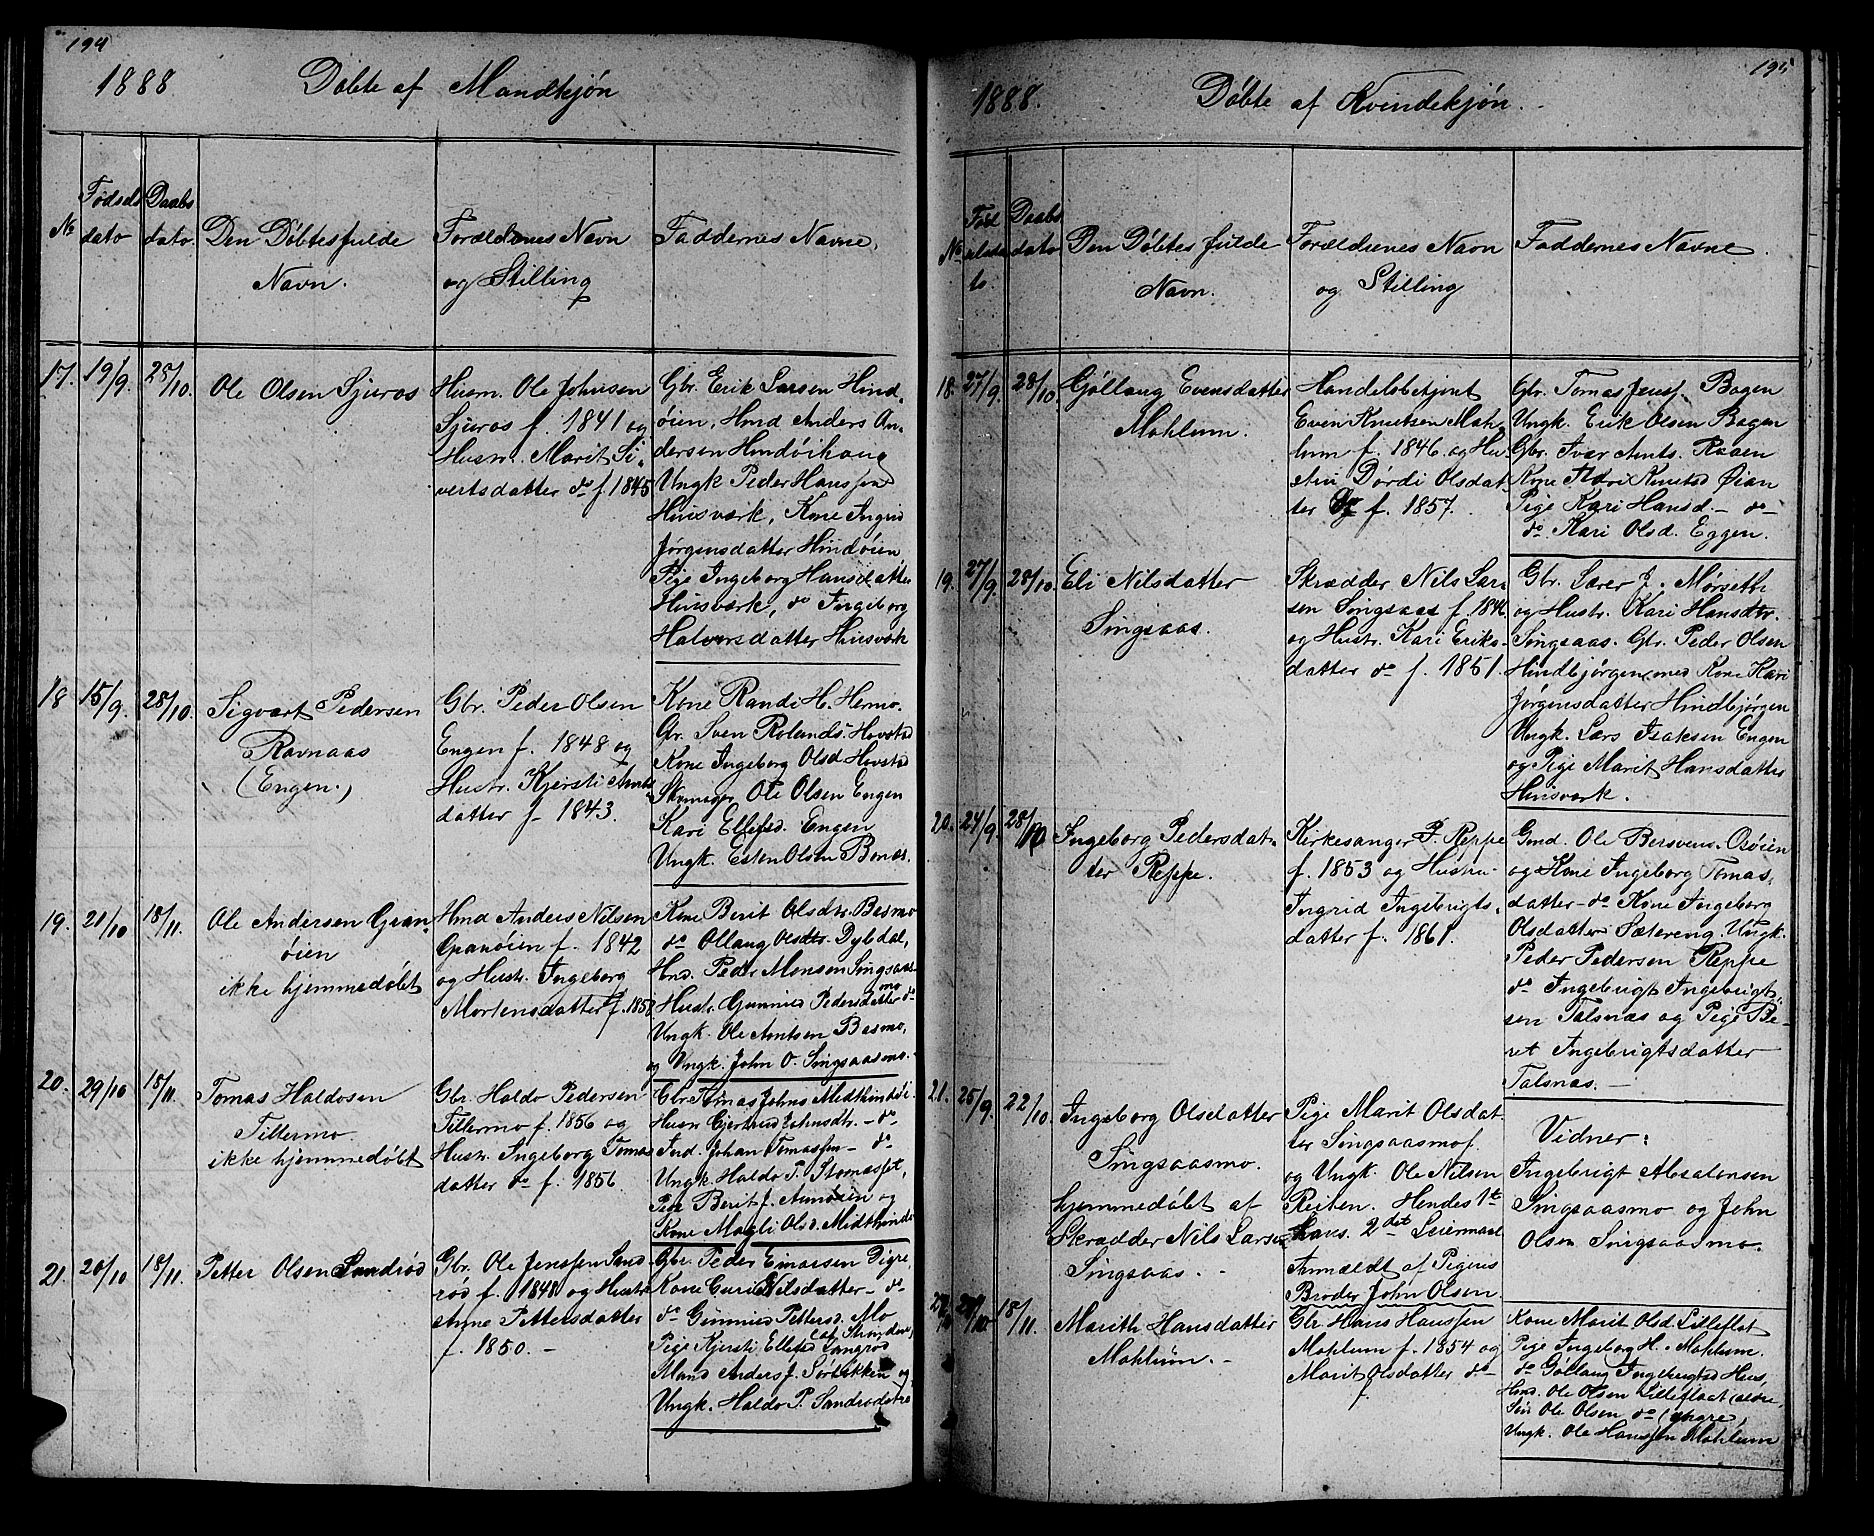 194
1888 Döbte af Mandkjøn
No Fødsels dato Daabs dato. Den Døbtes fulde Navn. Forældrenes Navn og Stilling Faddernes Navne.
17. 19/9. 28/10. Ole Olsen Sjuros
Husm. Ole Johnsen
Sjuros f. 1841 og
Hustr. Marit Si-
vertsdatter do f. 1845
Gbr. Erik Larsen Hind-
øien, Hmd Anders An-
dersen Hindöihaug
Ungk Peder Hanssen
Huusværk, Kone Ingrid
Jørgensdatter Hindöien
Pige Ingeborg Hansdatter
Huusværk, do Ingeborg
Halvorsdatter Huusværk
18 15/9. 28/10. Sigvart Pedersen
Ravnaas
(Engen.)
Gbr. Peder Olsen
Engen f. 1848 og
Hustr. Kjersti Arnts
datter f. 1843.
Kone Randi H. Hemo.
Gr. Sven Rolands. Hovstad
Kone Ingeborg Olsd Hovstad
Ole Olsen Engen
Kari Ellefsd. Engen
Ungk. Esten Olsen Bonæs.
19. 21/10 18/11. Ole Andersen Gran-
öien
ikke hjemmedøbt
Hmd Anders Nilsen
Granöien f. 1842
og Hustr. Ingeborg
Mortensdatter f. 1858
Kone Berit Olsdtr. Besmo
do Ollaug Olsdtr. Dybdal,
Hmd. Peder Monsen Singsaas-
mo
Hustr. Gunnild Pedersdatter do
Ungk. Ole Arntsen Besmo,
og Ungk. John O. Singsaasmo.
20. 29/10 18/11. Tomas Haldosen
Tillermo.
ikke hjemmedøbt
Gbr. Haldo Pedersen
Tillermo f. 1856 og
Hustr. Ingeborg Tomas
datter do f. 1856
Gbr. Tomas Johns Midthindöi.
Husm Gjertrud Johnsdtr. - do
Ind. Johan Tomassen - do
Ungk. Haldo P. Stomasset,
Pige Berit J. Aunöien og
Kone Magli Olsd. Midthindö
21. 26/10 18/11. Petter Olsen Sandrød
Gbr. Ole Jenssen Sand
rød f. 1848 og Hustr
Anne Pettersdatter
f. 1850. -
Gbr. Peder Einarsen Digre
Kone Guri Nilsdatter - do
do Gunnild Pettersd. Mo
Pige Kjersti Ellefsd Langrød
Mand Anders J.
Ungk. Haldo P.
195
1888. Döbte af Kvindekjøn.
No Fødselsdato Daabs dato Den Döbtes fulde Navn. Forældrenes Navn og Stilling Faddernes Navne
18. 27/9. 28/10. Gjöllaug Evensdatter
Mohlum.
Handelsbetjent
Even Knutsen Moh-
lum f. 1846 og Hu-
stru Dørdi Olsdat
ter do f. 1857.
Gbr. Tomas Jenss. Bogen
Ungk. Erik Olsen Bogen
Gbr. Ivar Arnts. Roaen
Kone Kari Knutsd Øian
Pige Kari Hansd. - do
do Kari Olsd. Eggen.
19. 27/9. 28/10. Eli Nilsdatter
Singsaas.
Skrædder Nils Lar
sen Singsaas f. 1846
og Hustr. Kari Eriks-
datter do f. 1851.
Gbr. Lærer J. Mørseth
og Hustr. Kari Hansdtr.
Singsaas. Gbr. Peder Olsen
Hindbjørgen, med Kone Kari
Jørgensdatter Hindbjørgen
Ungk. Lars Isaksen Engen
og Pige Marit Hansdatter
Huusværk.
20. 24/9. 28/10 Ingeborg Pedersdat-
ter Reppe.
Kirkesanger P. Reppe
f. 1853 og Hustru
Ingrid Ingebrigts-
datter f. 1861.
Gmd. Ole Bersvens. Osöien
og Kone Ingeborg Tomas,
datter do Kone Ingeborg
Olsdatter Sætereng. Ungk.
Peder Pedersen Reppe
do Ingebrigt Ingebrigt-
sen Talsnæs og Pige Be-
ret Ingebrigtsdatter
Talsnæs. -
21. 25/9. 22/10. Ingeborg Olsdatter
Singsaasmo.
hjemmedøbt af
Skrædder Nils Larsen
Singsaas.
Pige Marit Olsdat
ter Singsaasmo f.
og Ungk. Ole Nilsen
Reiten. Hendes 1te
hans 2det Leiermaal
Anmældt af Pigens
Broder John Olsen.
Vidner:
Ingebrigt Absalonsen
Singsaasmo og John
Olsen Singsaasmo.
22 18/11. Marith Hansdatter
Mohlum. -
Gbr Hans Hanssen
Mohlum f. 1854 og
Marit Olsdatter do
f.
Kone Marit Olsd Lilleflot
Pige Ingeborg H. Mohlum.
do Göllaug Ingebrigtsd Huus,
Hmd. Ole Olsen Lilleflaat (ældre,
Søn Ole Olsen do (yngre),
Ungk. Ole Hanssen Mohlum